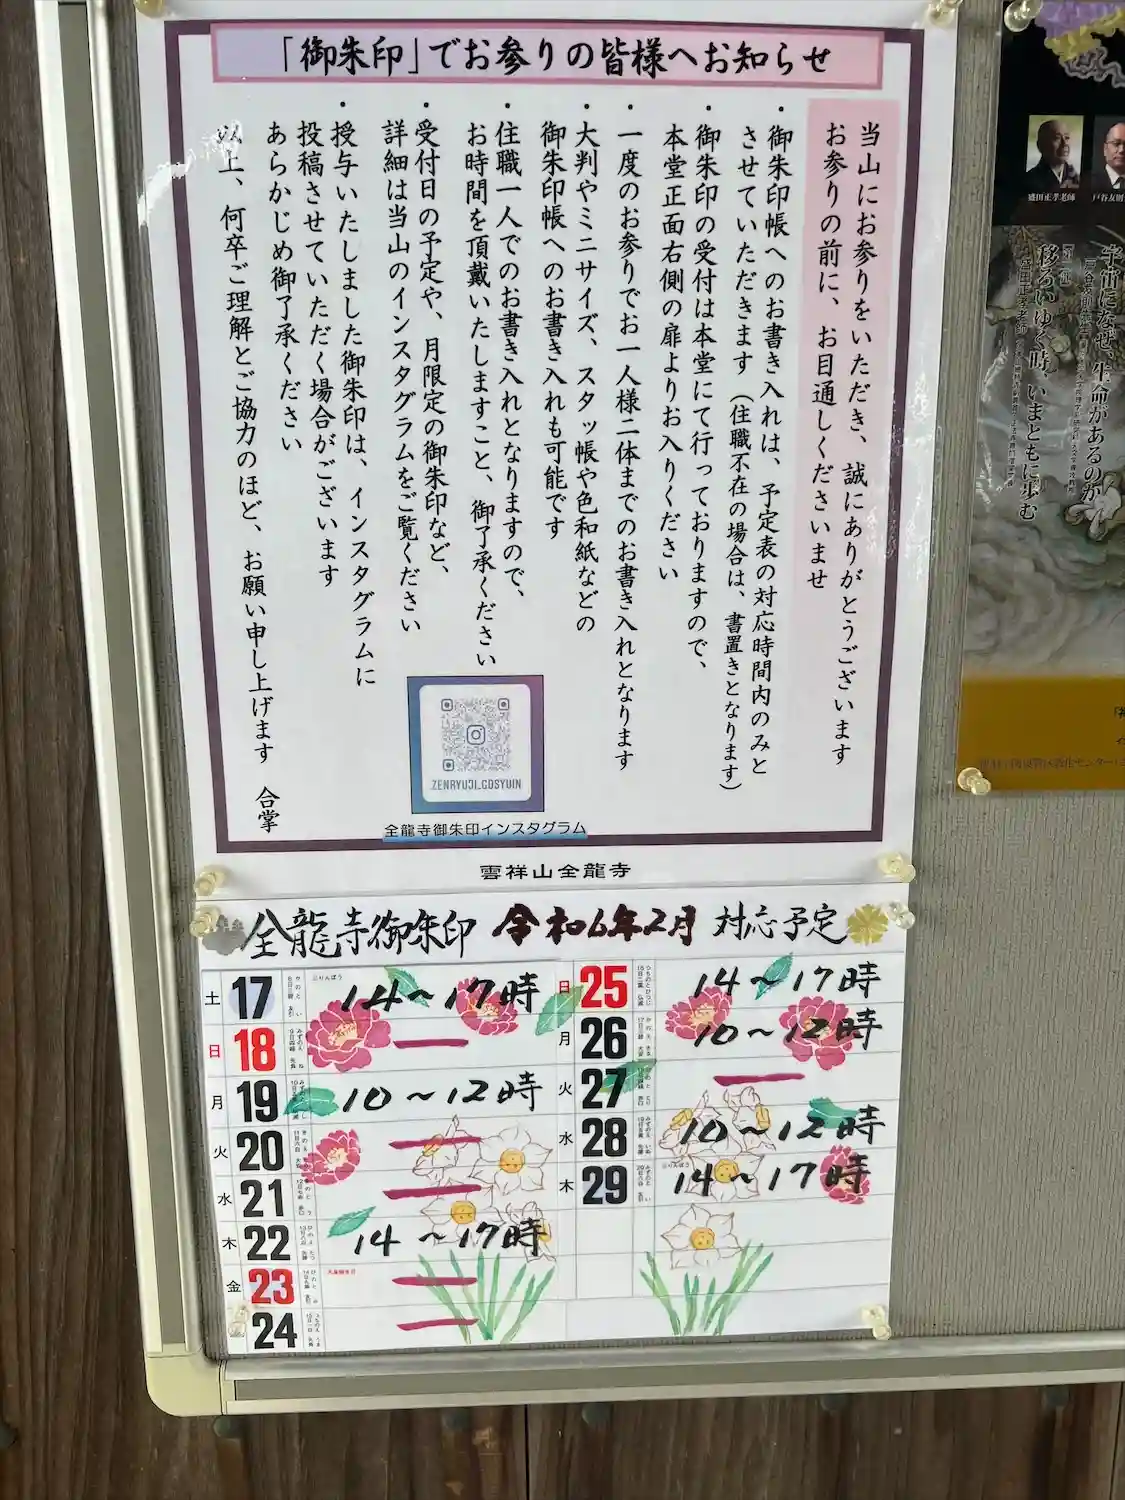 「御朱印」でお参りの皆様へお知らせ
当山にお参りをいただき、誠にありがとうございます
お参りの前に、お目通しくださいませ
・御朱印帳へのお書き入れは、予定表の対応時間内のみと
させていただきます（住職不在の場合は、書置きとなります）
・御朱印の受付は本堂にて行っておりますので、
本堂正面右側の扉よりお入りください
・一度のお参りでお一人様二体までのお書き入れとなります
・大判やミニサイズ、スタッ帳や色和紙などの
御朱印帳へのお書き入れも可能です
・住職一人でのお書き入れとなりますので、
お時間を頂戴いたしますこと、御了承ください
・受付日の予定や、月限定の御朱印など、
詳細は当山のインスタグラムをご覧ください
・授与いたしました御朱印は、インスタグラムに
投稿させていただく場合がございます
あらかじめ御了承ください
以上、何卒ご理解とご協力のほど、お願い申し上げます 合掌
ZENRYUJI_GOSYUIN
全龍寺御朱印インスタグラム
雲祥山全龍寺
全龍寺御朱印 令和6年2月 対応予定
土 17 14～17時
日 18
月 19 10～12時
火 20
水 21
木 22 14～17時
金 23
24
日 25 14～17時
月 26 10～12時
火 27
水 28 10～12時
木 29 14～17時
盛田正孝老師
宇宙になぜ、生命があるのか
移ろいゆく時、いまともに歩む